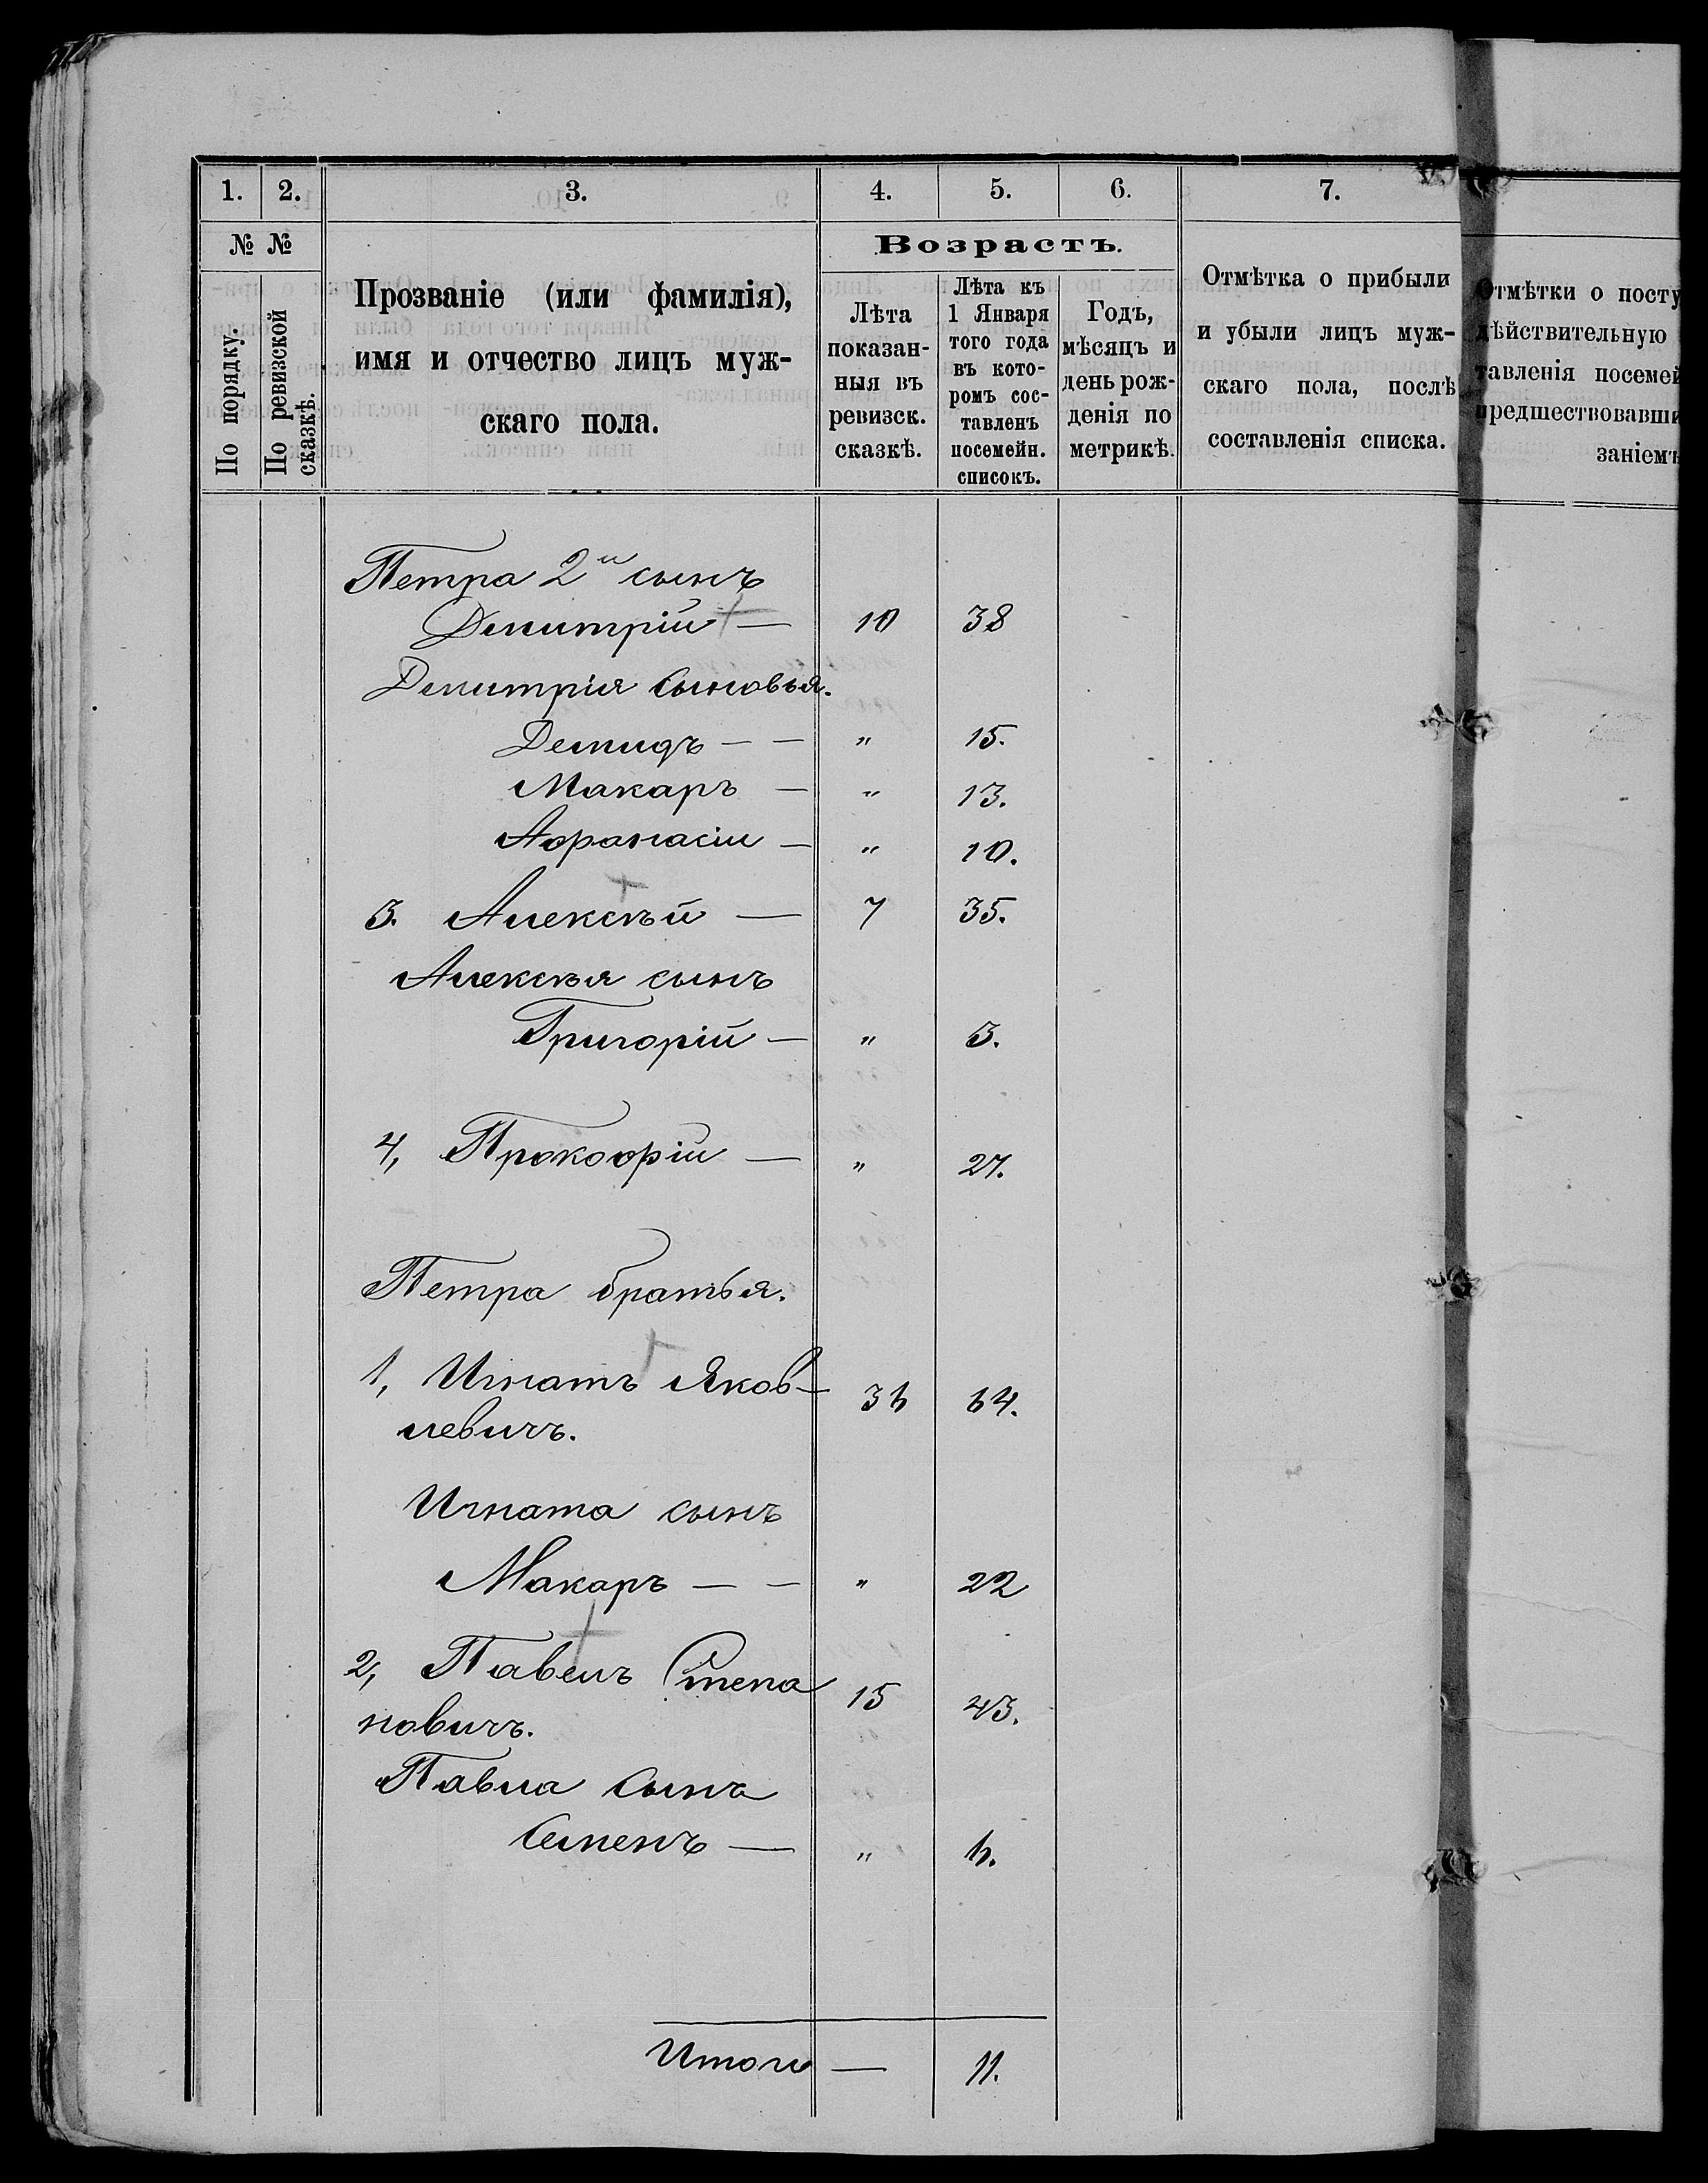 1. 2. 3. 4. 5. 6. 7.
№ №
По порядку.
По ревизской сказкѣ.
Прозваніе (или фамилія),
имя и отчество лицъ муж-
скаго пола.
Возрастъ.
Лѣта
показан-
ныя въ
ревизск.
сказкѣ.
Лѣта къ
1 Января
того года
въ кото-
ромъ сос-
тавленъ
посемейн.
списокъ.
Годъ,
мѣсяцъ и
день рож-
денія по
метрикѣ.
Отмѣтка о прибыли
и убыли лицъ муж-
скаго пола, послѣ
составленія списка.
Отмѣтки о посту
дѣйствительную
тавленія посемей
предшествовавши
заніемъ
Петра 2й сынъ
Димитрій — 10 38
Димитрія сыновья.
Демидъ — — " 15.
Макаръ — " 13.
Афанасій — " 10.
3. Алексѣй — 7 35.
Алексѣя сынъ
Григорій — " 3.
4, Прокофій — " 27.
Петра братья.
1, Игнатъ Яков- 36 64.
левичъ.
Игната сынъ
Макаръ — — " 22
2, Павелъ Степа 15 43.
новичъ.
Павла сынъ
Семенъ — " 6.
Итого — 11.